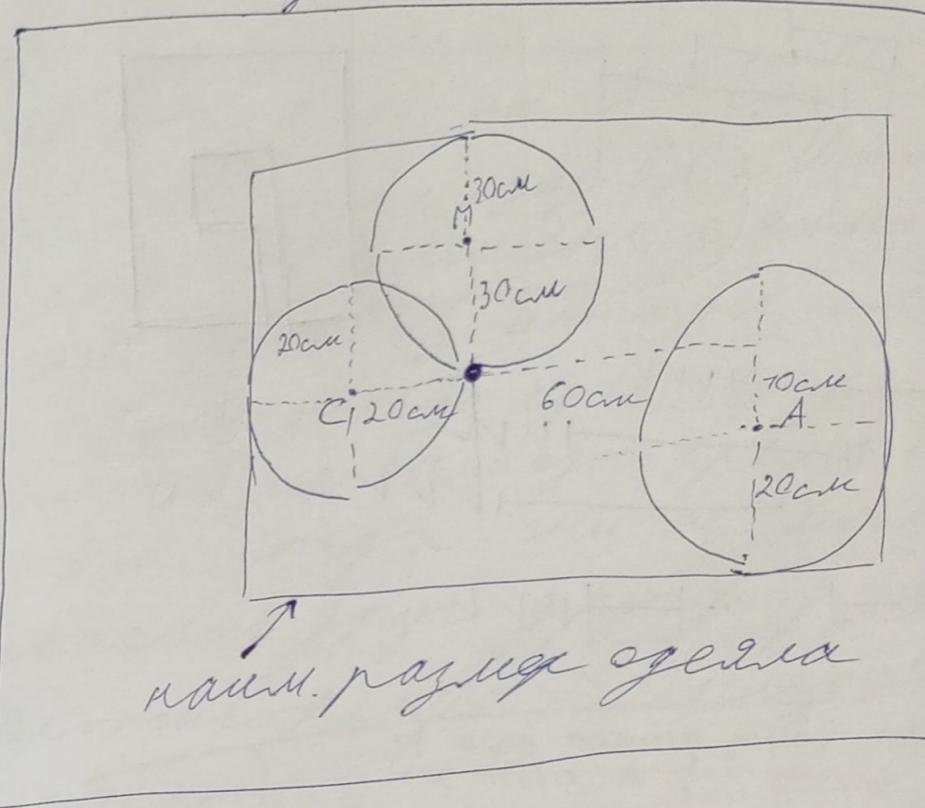 30см
М
30см
20см
С
20см
60см
10см
А
20см
наим. размер одеяла